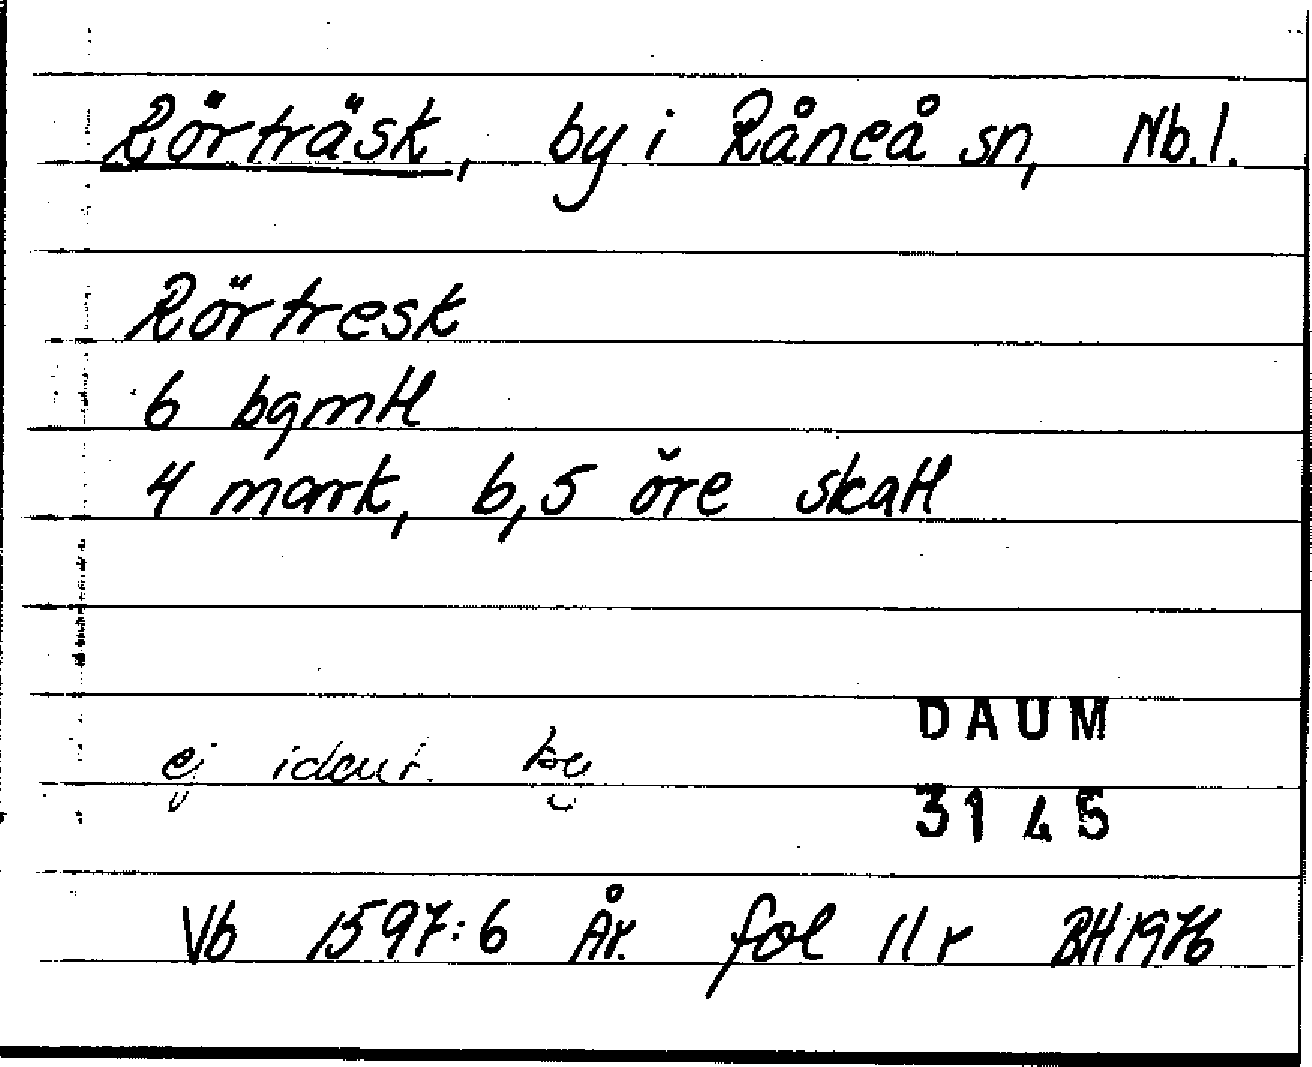 Rörträsk, by i Råneå sn, Nb.l.
Rörtresk
6 bgmtl
4 mark, 6,5 öre skatt
ej ident. by
DAUM
3145
Vb 1597:6 År. fol 11 r BH 1976